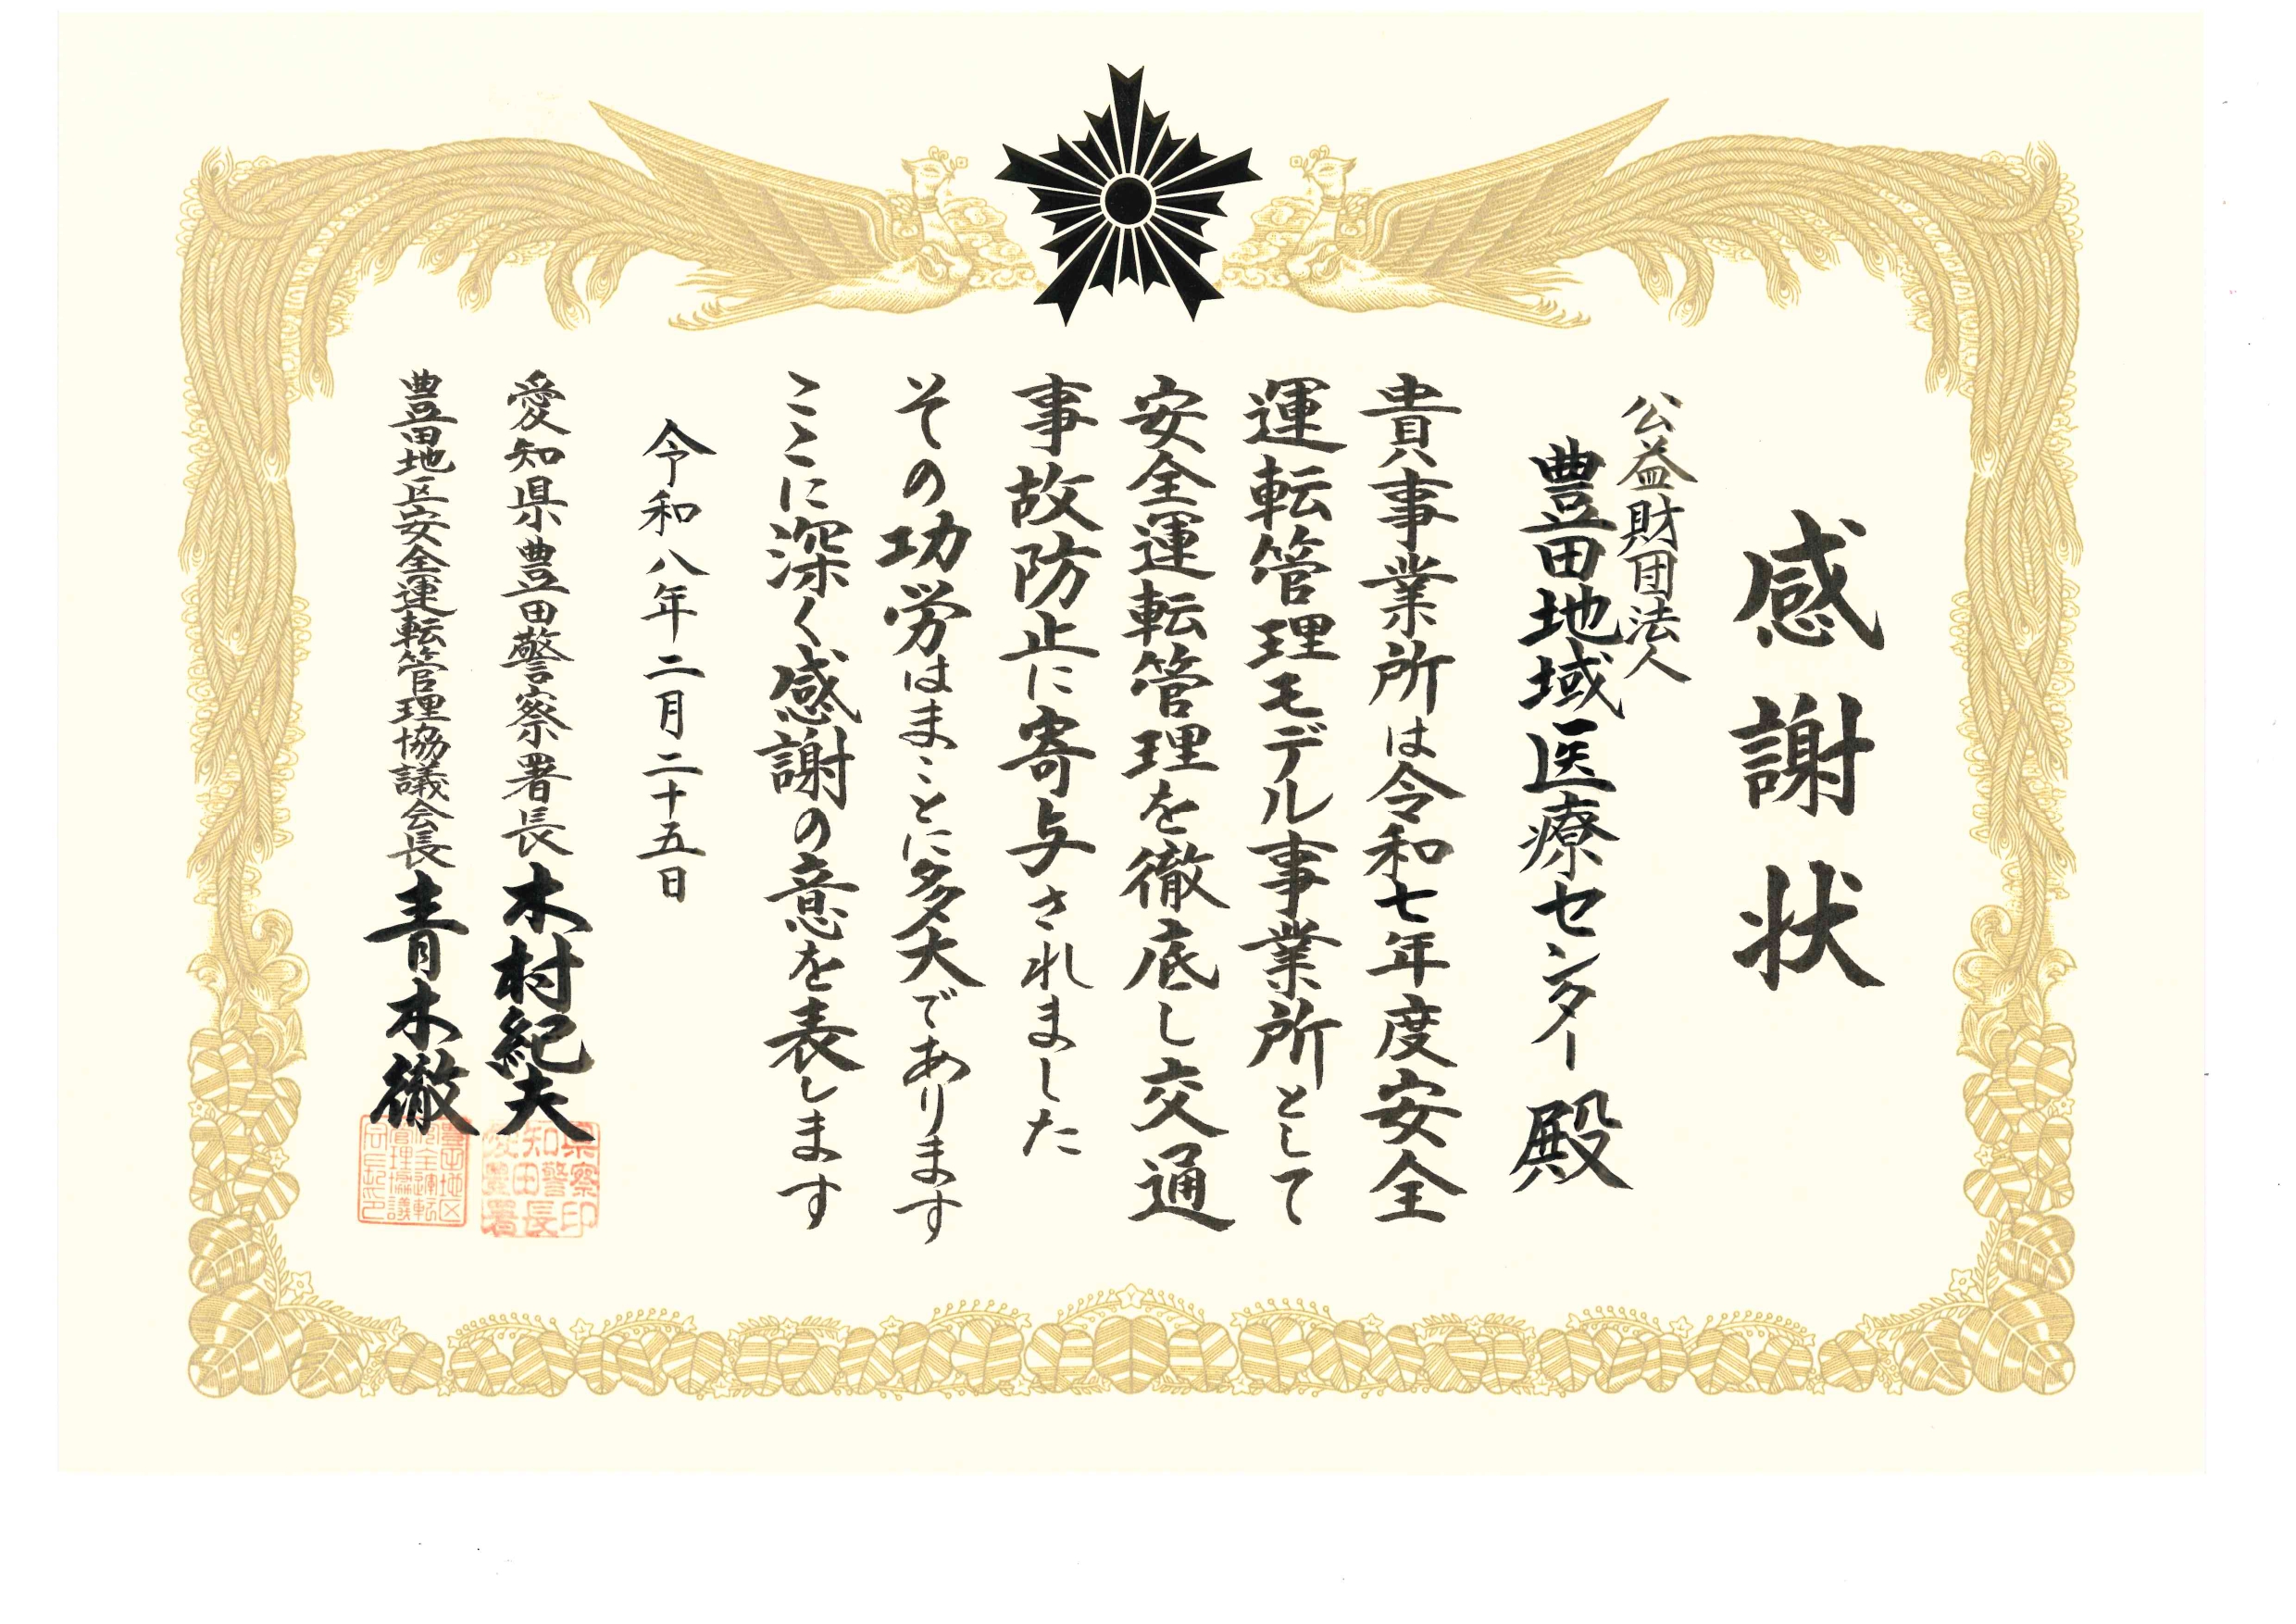 感謝状
公益財団法人
豊田地域医療センター殿
貴事業所は令和七年度安全
運転管理モデル事業所として
安全運転管理を徹底し交通
事故防止に寄与されました
その功労はまことに多大であります
ここに深く感謝の意を表します
令和八年二月二十五日
愛知県豊田警察署長 木村紀夫
豊田地区安全運転管理協議会長 青木徹
県察印
知警長
愛豊田署
豊田地区
安全運転
管理協議
会長之印